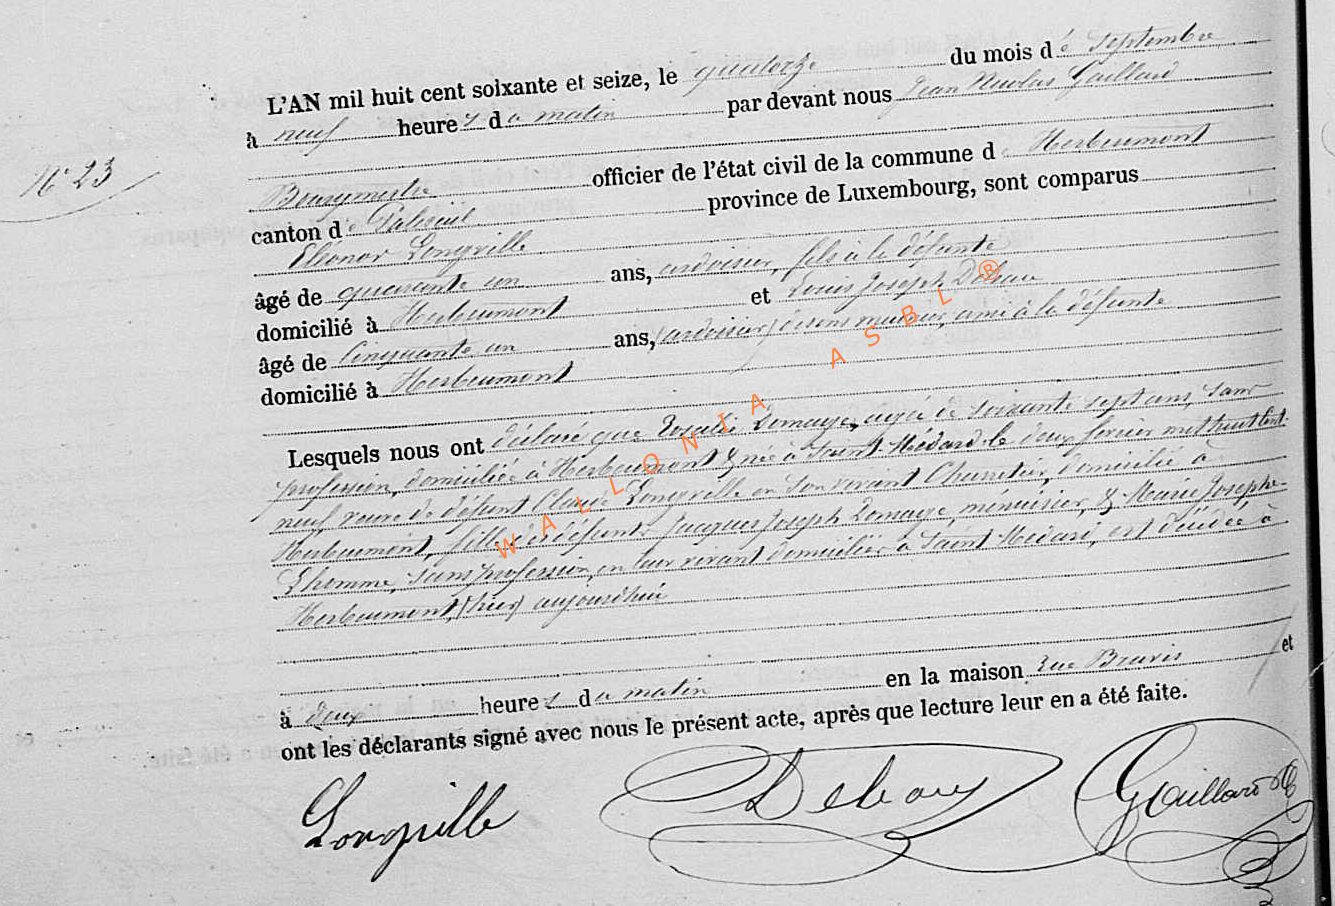 L'AN mil huit cent soixante et seize, le quatorze du mois de Septembre
à neuf heures du matin par devant nous Jean Nicolas Gaillard
N° 23
Bourgmestre officier de l'état civil de la commune d Herbeumont
canton de Paliseul province de Luxembourg, sont comparus
Eléonor Longville
âgé de quarante un ans, ardoisier, fils à la défunte
domicilié à Herbeumont et Louis Joseph
âgé de Cinquante un ans, (ardoisier) mineur, ami à la défunte
domicilié à Herbeumont
Lesquels nous ont déclaré que Rosalie Lomaye, agée de soixante sept ans, sans
profession, domiciliée à Herbeumont & née à Saint-Médard le deux février mil huit cent
neuf, veuve de défunt Claude Longville en son vivant Charretier, domicilié à
Herbeumont, fille des défunts Jacques Joseph Lomaye, ménuisier, & Marie Josèphe
Lhomme, sans profession, en leur vivant domiciliés à Saint Médard, est décédée à
Herbeumont, (hier) aujourd'hui
à deux heures du matin en la maison Rue et
ont les déclarants signé avec nous le présent acte, après que lecture leur en a été faite.
Longville Gaillard
WALLONIA ASBL ®